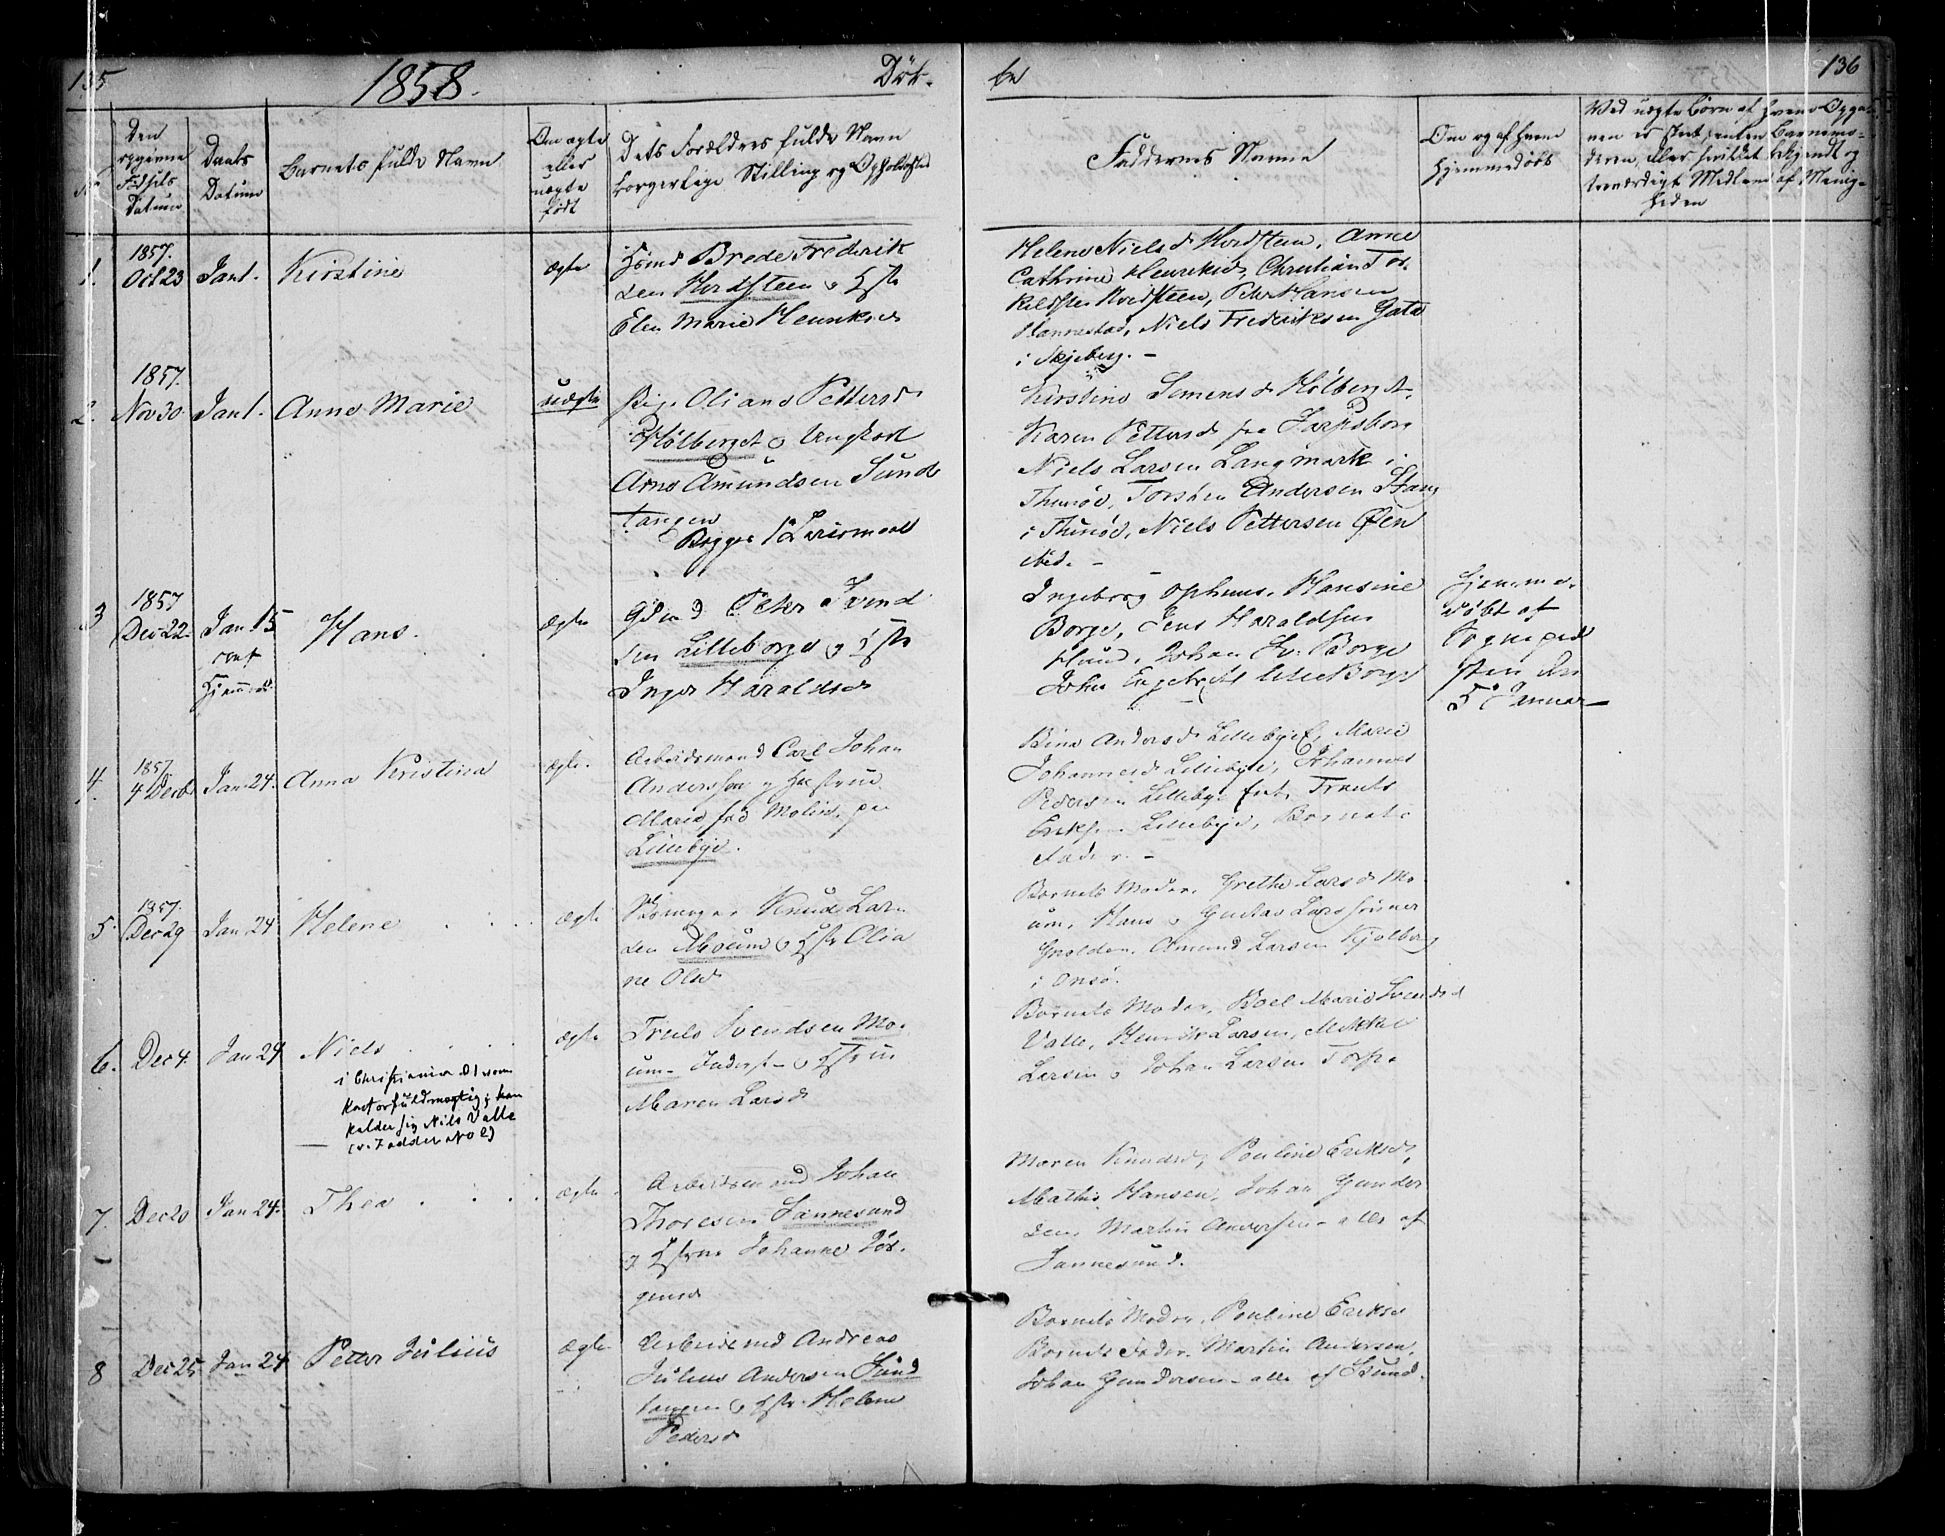 135
1858.
Døb-
te
136
No
Den
opgivne
Fødsels
Datum
Daabs
Datum
Barnets fulde Navn
Om ægte
eller
uægte
født
Dets Forældres fulde Navn
borgerlige Stilling og Opholdssted
Faddernes Navne
Om og af hvem
hjemmedøbt
Ved uægte Børn af hvem Opga-
ven er skeet, enten Barnemo-
deren, eller hvilket bekjendt og
troværdigt Medlem af Menig-
heden
1.
1857.
Oct 23
Jan 1.
Kirstine
ægte
Hsmd Brede Frederik
sen Hordsteen & Hst
Elen Marie Henriksd
Helene Nielsd Hordsteen, Anne
Cathrine Henriksd, Christian Tor-
Hordsteen, Peter Hansen
Hannestad, Niels Frederiksen Gata
i Skjeberg. -
2.
1857.
Nov 30.
Jan 1.
Anne Marie
uægte
Pig. Oliane Pettersd
Hølberget & Ungkarl
Arne Amundsen Sund
tangen
Begges 1ste Leiermaal
Kirstine Simensd Hølberget,
Karen Pettersd fra Sarpsborg
Niels Larsen Langmark i
Thunø, Torsten Andersen Stang
i Thunø, Niels Pettersen Øen
ibid. -
3
1857
Dec 22.
Jan 15
conf
Hjemmed.
Hans.
ægte
Gbmd Peter Svend
sen Lilleborge & Hst
Inger Haraldsd
Ingeborg Ophuus, Hansine
Borge, Jens Haraldsen
Hund, Johan Borge
Johs Engebrets Lille Borge
Hjemme-
døbt af
Sognepræ
sten den
5 Januar
4.
1857
4 Decb
Jan 24.
Anna Kristina
ægte.
Arbeidsmand Carl Johan
Andersson og Hustrue
Maria fød Molin, paa
Lillebye.
Bina Andersd Lillebye, Marie
Johannesd Lillebye, Johannes
Pedersen Lillebye Truls
Eriksen Lillebye, Barnets
Fader. -
5.
1857.
Dec 29
Jan 24
Helene
ægte
Knud Lar
sen Moum & Hst Olia
ne Olsd
Barnets Moder, Grethe Larsd Mo
um, Hans & Gustav Larssønner
Grolden, Amund Larsen Kjølberg
i Onsø.
6.
Dec 4.
Jan 24
Niels
i Christiania Ol som
kontorfuldmægtig; han
kalder sig Nils Valle
(v. Fadder No 2)
ægte
Truls Svendsen Mo-
um- Inderst - & Hstrue
Maren Larsd
Barnets Moder, Boel Marie Svendsd
Valle, Henrik Larsen, Mikkel
Larsen & Johan Larsen Torp.
7.
Dec 20
Jan 24.
Thea
ægte
Arbeidsmand Johan
Thoresen Sannesund
& Hstrue Johanne Jør-
gensd
Maren Knudsd, Pauline Eriksd,
Mathis Hansen, Johan Gunder
sen, Martin Andersen - alle af
Sannesund.
8
Dec 25
Jan 24
Petter Julius
ægte
Arbeidsmd Andreas
Julius Andersen Sund
tangen & Hst. Helene
Pedersd
Barnets Moder, Pauline Eriksd
Barnets Fader, Martin Andersen,
Johan Gundersen - alle af S.sund.